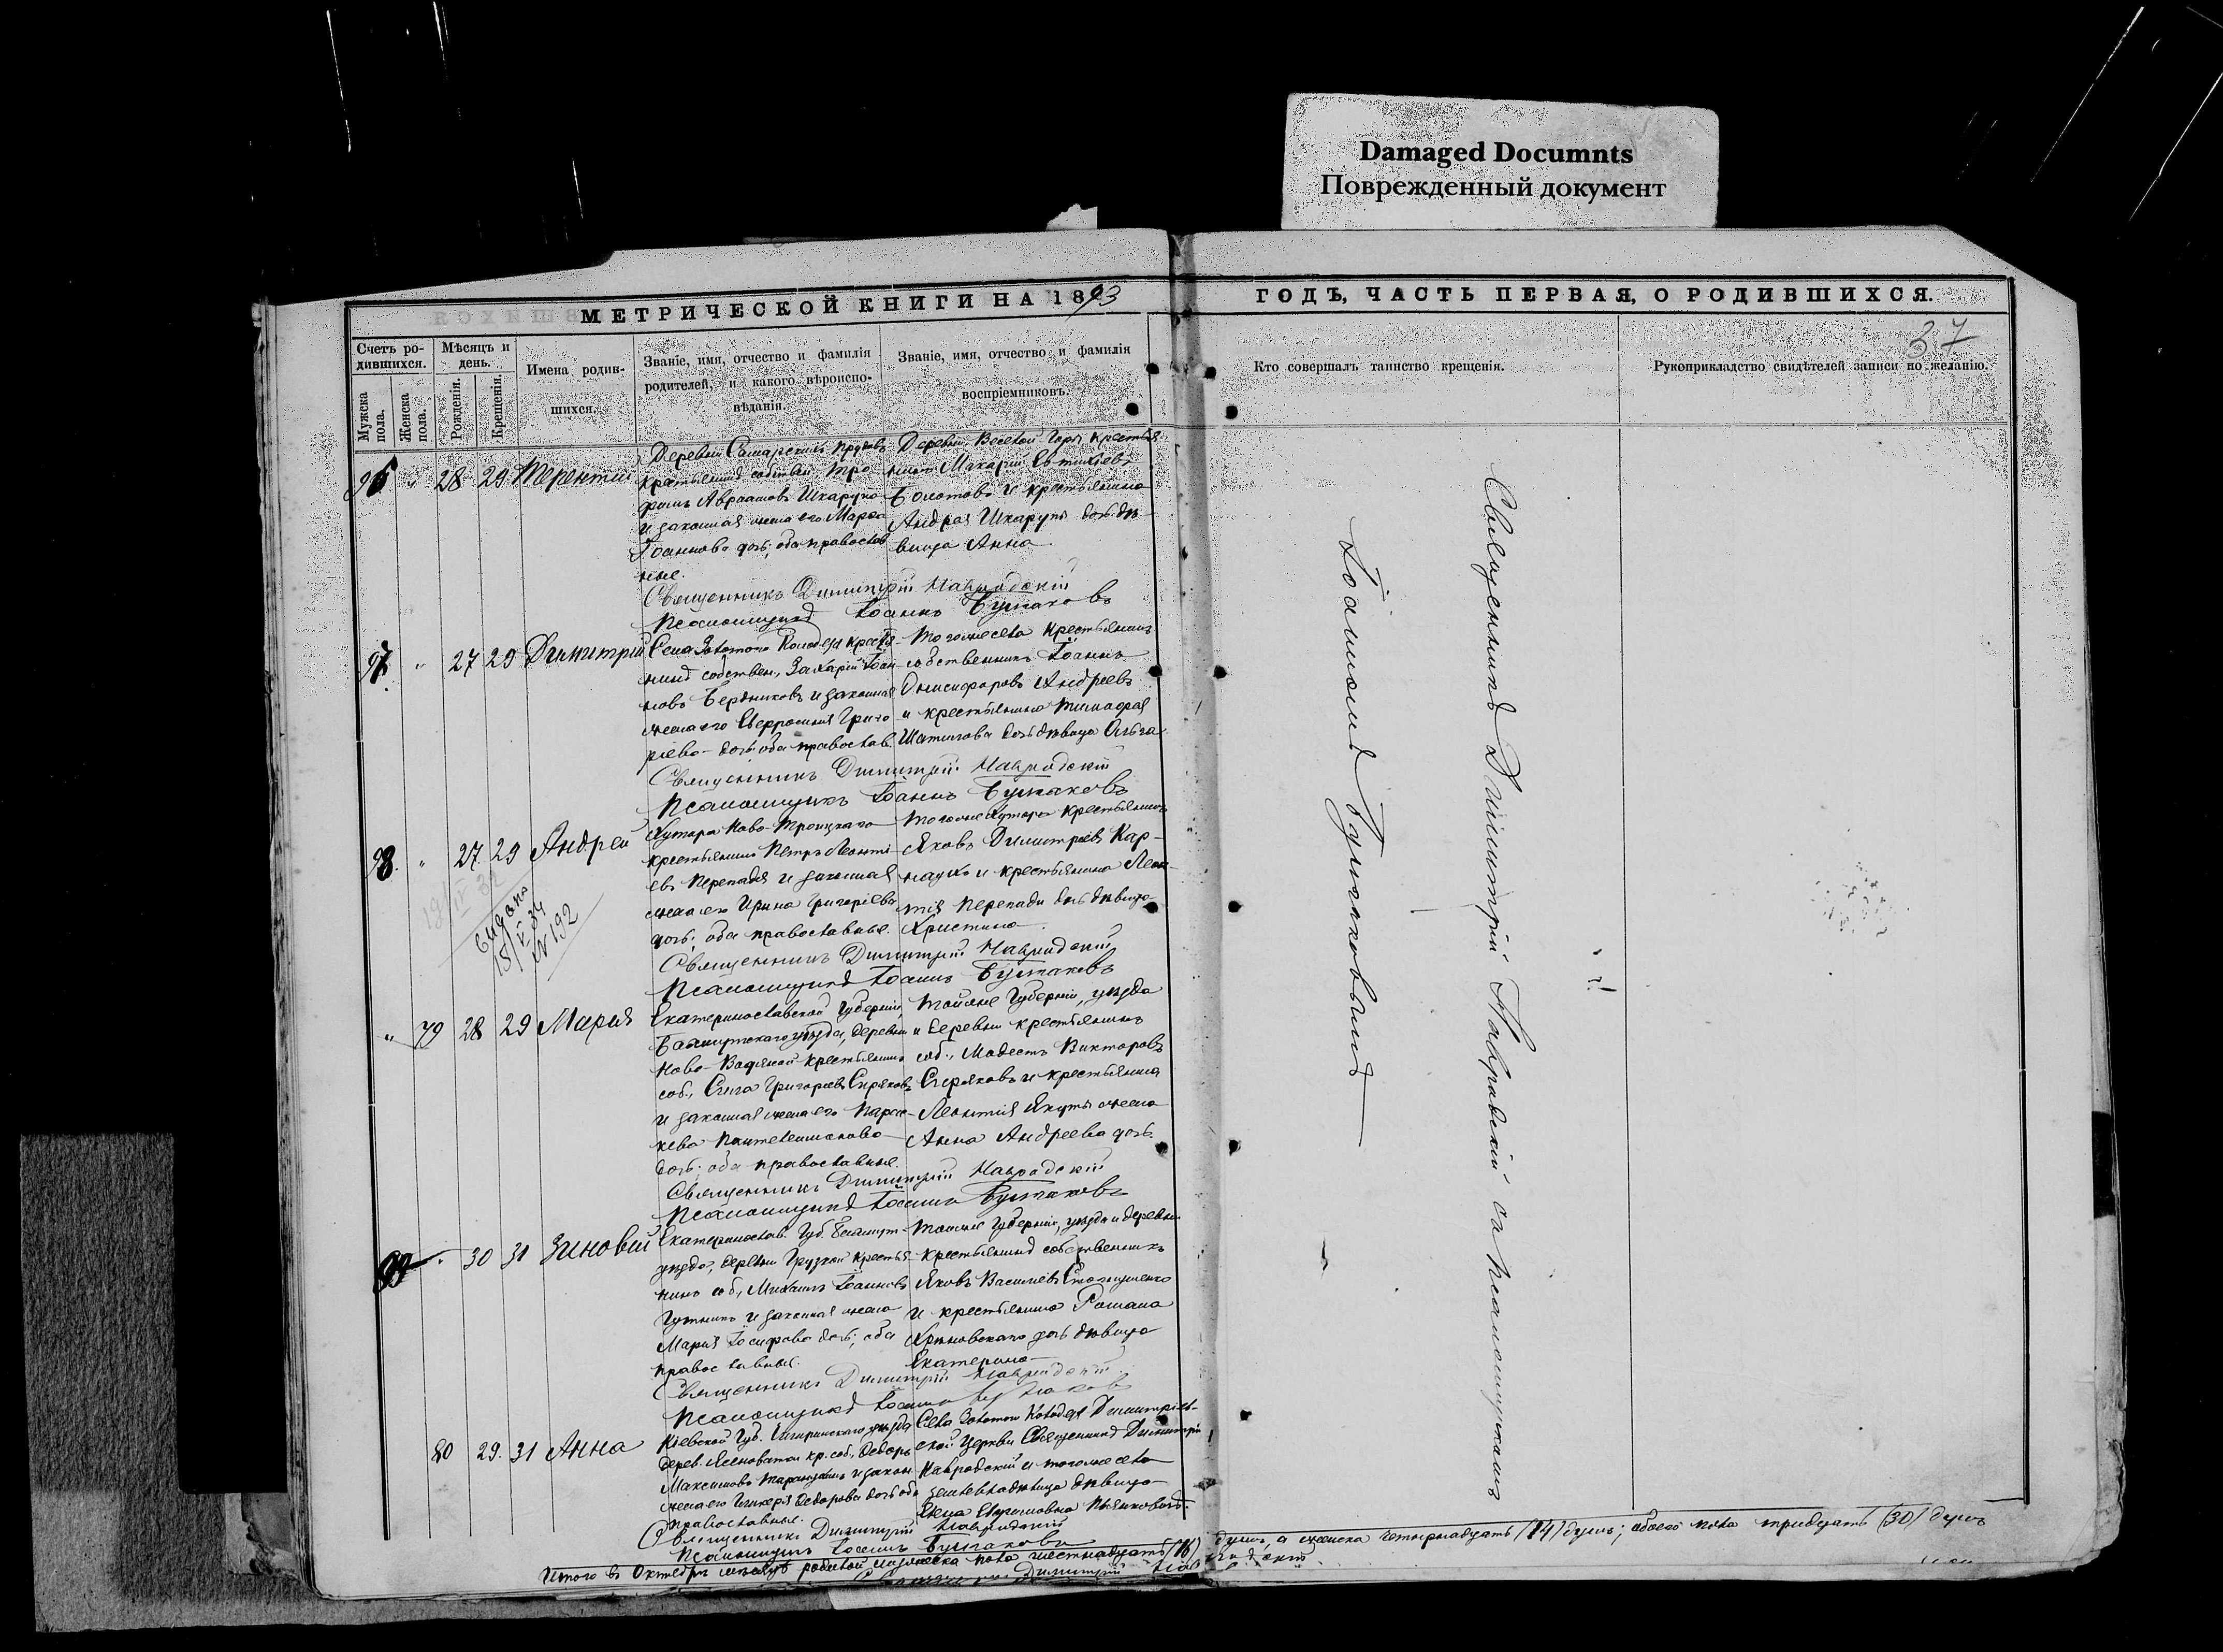 Damaged Documnts
Поврежденный документ
МЕТРИЧЕСКОЙ КНИГИ НА 1893
ГОДЪ, ЧАСТЬ ПЕРВАЯ, О РОДИВШИХСЯ.
37
Счетъ ро-
дившихся.
Мужска пола.
Женска пола.
Мѣсяцъ и
день.
Рожденія.
Крещенія.
Имена родив-
шихся.
Званіе, имя, отчество и фамилія
родителей, и какого вѣроиспо-
вѣданія.
Званіе, имя, отчество и фамилія
воспріемниковъ.
Кто совершалъ таинство крещенія.
Рукоприкладство свидѣтелей записи по желанію.
96 " 28 29 Терентий
Деревни Самарскихъ Прудовъ
крестьянинъ собствен. Тро
фимъ Авраамовъ Шкарупо
и законная жена его Марѳа
Іоаннова дочь; оба православ
ные.
Деревни Веселой Горы крестья
нинъ Макарій Евтихіевъ
Болотовъ и крестьянина
Андрея Шкарупы дочь дѣ-
вица Анна.
Священникъ Димитрій Навродскій
Псаломщикъ Іоаннъ Бушаковъ
97. " 27 29 Димитрій
Села Золотого Колодезя крестья-
нинъ собствен. Захарій Іоан
новъ Бережниковъ и законная
жена его Евфросинія Григо
ріева дочь, оба православ.
Того же села крестьянинъ
собственникъ Іоаннъ
Онисифоровъ Андреевъ
и крестьянина Тимофея
Шатилова дочь дѣвица Ольга
Священникъ Димитрій Навродскій
Псаломщикъ Іоаннъ Бушаковъ
98. " 27. 29 Андрей
выдано
18/V 34
№ 192
Хутора Ново-Троицкаго
крестьянинъ Петръ Леонті-
евъ Перепадя и законная
жена его Ирина Григоріева
дочь; оба православные.
Того же хутора крестьянинъ
Яковъ Димитріевъ Кар-
наухъ и крестьянина Леон-
тія Перепади дочь дѣвица
Христина.
Священникъ Димитрій Навродскій
Псаломщикъ Іоаннъ Бушаковъ
" 79 28 29 Марія
Екатеринославской Губерніи,
Бахмутскаго уѣзда, деревни
Ново- крестьянинъ
соб., Григоріевъ Скряковъ
и законная жена его Парас-
кева Пантелеимонова
дочь; оба православные.
Той же Губерніи, уѣзда
и деревни крестьянинъ
соб., Модестъ Викторовъ
Скряковъ и крестьянина
Леонтія Якуты жена
Анна Андреева дочь.
Священникъ Димитрій Навродскій
Псаломщикъ Іоаннъ Бушаковъ
99 " 30 31 Зиновій
Екатеринослав. Губ. Бахмут-
уѣзда, деревни Грузской крестья-
нинъ соб., Михаилъ Іоанновъ
Гутникъ и законная жена
Марія Іосифова дочь; оба
православные.
Той же Губерніи, уѣзда и деревни
крестьянинъ собственникъ
Яковъ Васильевъ
и крестьянина Романа
Хрѣновскаго дочь дѣвица
Екатерина
Священникъ Димитрій Навродскій
Псаломщикъ Іоаннъ Бушаковъ
80 29. 31 Анна
Кіевской Губ. Чигиринскаго уѣзда
дерев. Ясноватки кр. соб., Ѳедоръ
Максимовъ и закон.
жена его Гликерія Ѳедорова дочь оба
православные.
Села Золотого Колодезя Димитріев-
ской Церкви Священникъ Димитрій
Навродскій и того же села
дѣвица
Елена
Священникъ Димитрій Навродскій
Псаломщикъ Іоаннъ Бушаковъ
Священникъ Димитрій Навродскій съ псаломщикомъ
Іоанномъ Бушаковымъ
Итого въ Октябрѣ мѣсяцѣ родилось мужеска пола шестнадцать (16) душъ, а женска четырнадцать (14) душъ; обоего пола тридцать (30) душъ
Димитрій Навродскій